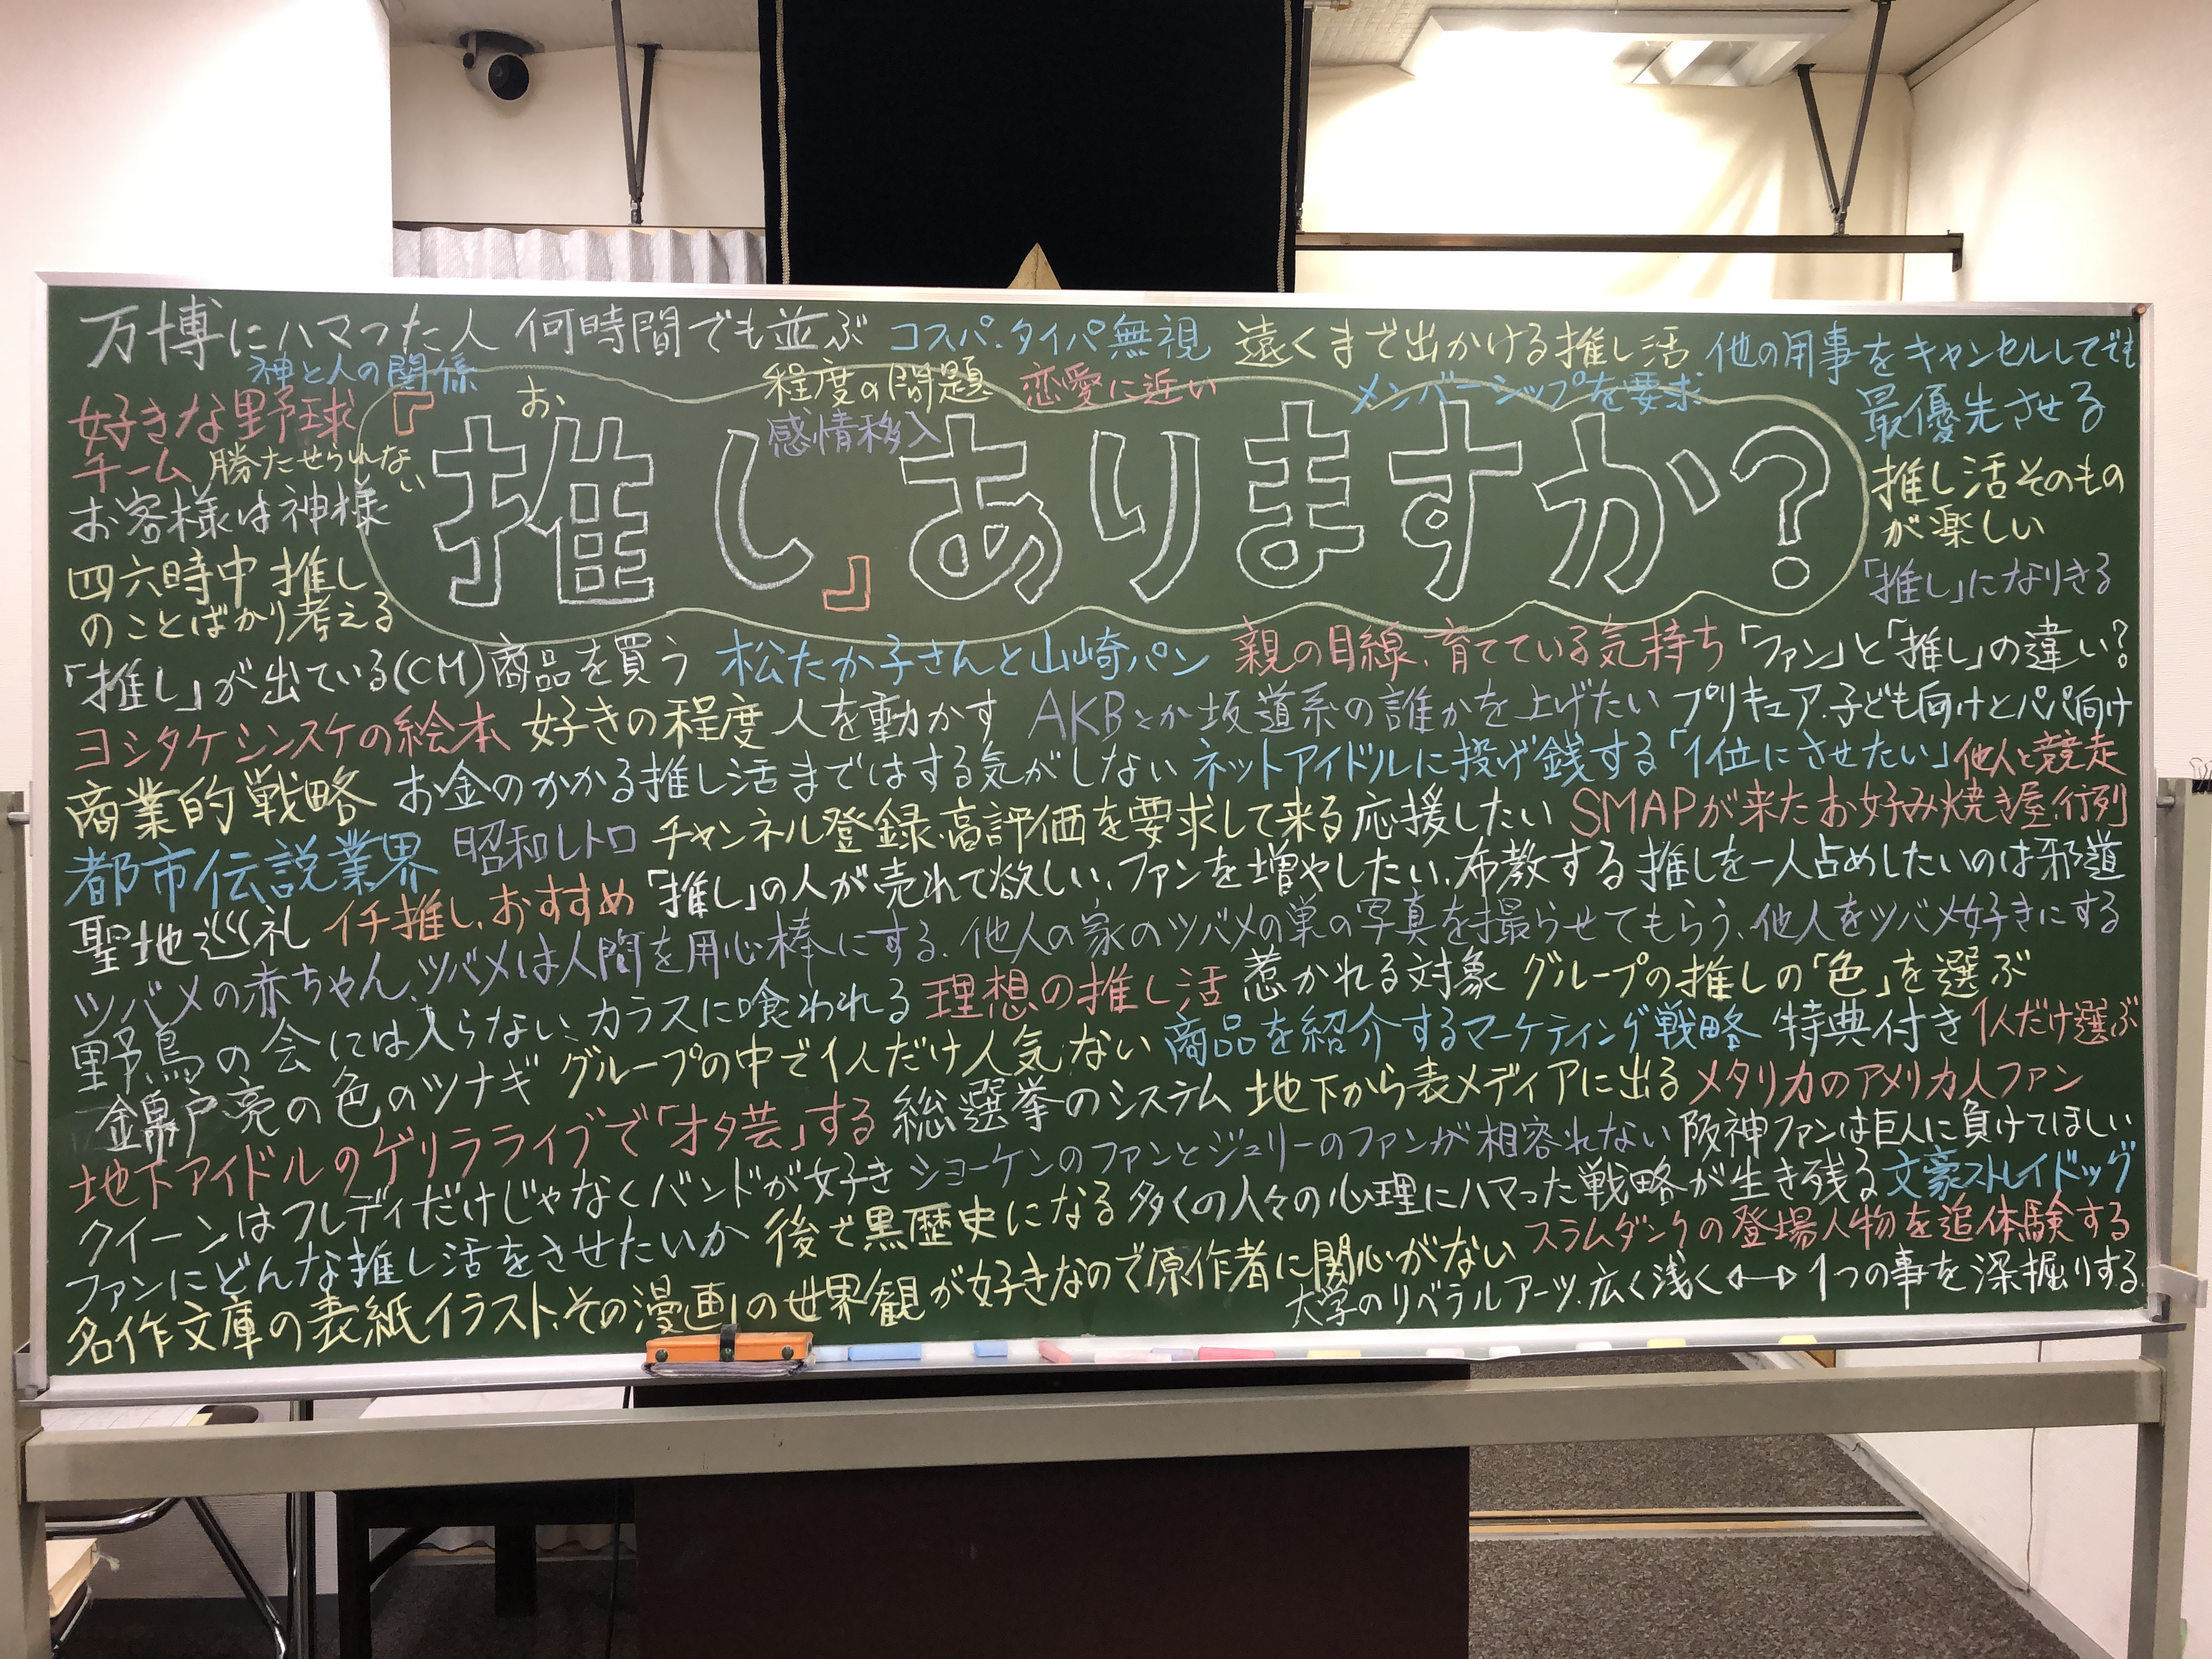 万博にハマった人 何時間でも並ぶ コスパ、タイパ無視 遠くまで出かける推し活 他の用事をキャンセルしてでも
最優先させる
神と人の関係 お、 程度の問題 恋愛に近い メンバーシップを要求
感情移入
好きな野球
チーム 勝たせられない
『推し』ありますか?
お客様は神様
推し活そのもの
が楽しい
四六時中 推し
のことばかり考える
「推し」になりきる
「推し」が出ている(CM)商品を買う 松たか子さんと山崎パン 親の目線、育てている気持ち 「ファン」と「推し」の違い?
ヨシタケシンスケの絵本 好きの程度 人を動かす AKBとか坂道系の誰かを上げたい プリキュア、子ども向けとパパ向け
商業的戦略 お金のかかる推し活まではする気がしない ネットアイドルに投げ銭する「1位にさせたい」他人と競走
都市伝説業界 昭和レトロ チャンネル登録、高評価を要求して来る 応援したい SMAPが来たお好み焼き屋、行列
聖地巡礼 イチ推し、おすすめ 「推し」の人が売れて欲しい、ファンを増やしたい、布教する 推しを一人占めしたいのは邪道
ツバメの赤ちゃん、ツバメは人間を用心棒にする、他人の家のツバメの巣の写真を撮らせてもらう、他人をツバメ好きにする
野鳥の会には入らない、カラスに喰われる 理想の推し活 惹かれる対象 グループの推しの「色」を選ぶ
錦戸亮の色のツナギ グループの中で1人だけ人気ない 商品を紹介するマーケティング戦略 特典付き 1人だけ選ぶ
地下アイドルのゲリラライブで「オタ芸」する 総選挙のシステム 地下から表メディアに出る メタリカのアメリカ人ファン
クイーンはフレディだけじゃなくバンドが好き ショーケンのファンとジュリーのファンが相容れない 阪神ファンは巨人に負けてほしい
ファンにどんな推し活をさせたいか 後で黒歴史になる 多くの人々の心理にハマった戦略が生き残る 文豪ストレイドッグ
名作文庫の表紙イラスト、その漫画の世界観が好きなので原作者に関心がない スラムダンクの登場人物を追体験する
大学のリベラルアーツ、広く浅く⟷1つの事を深掘りする